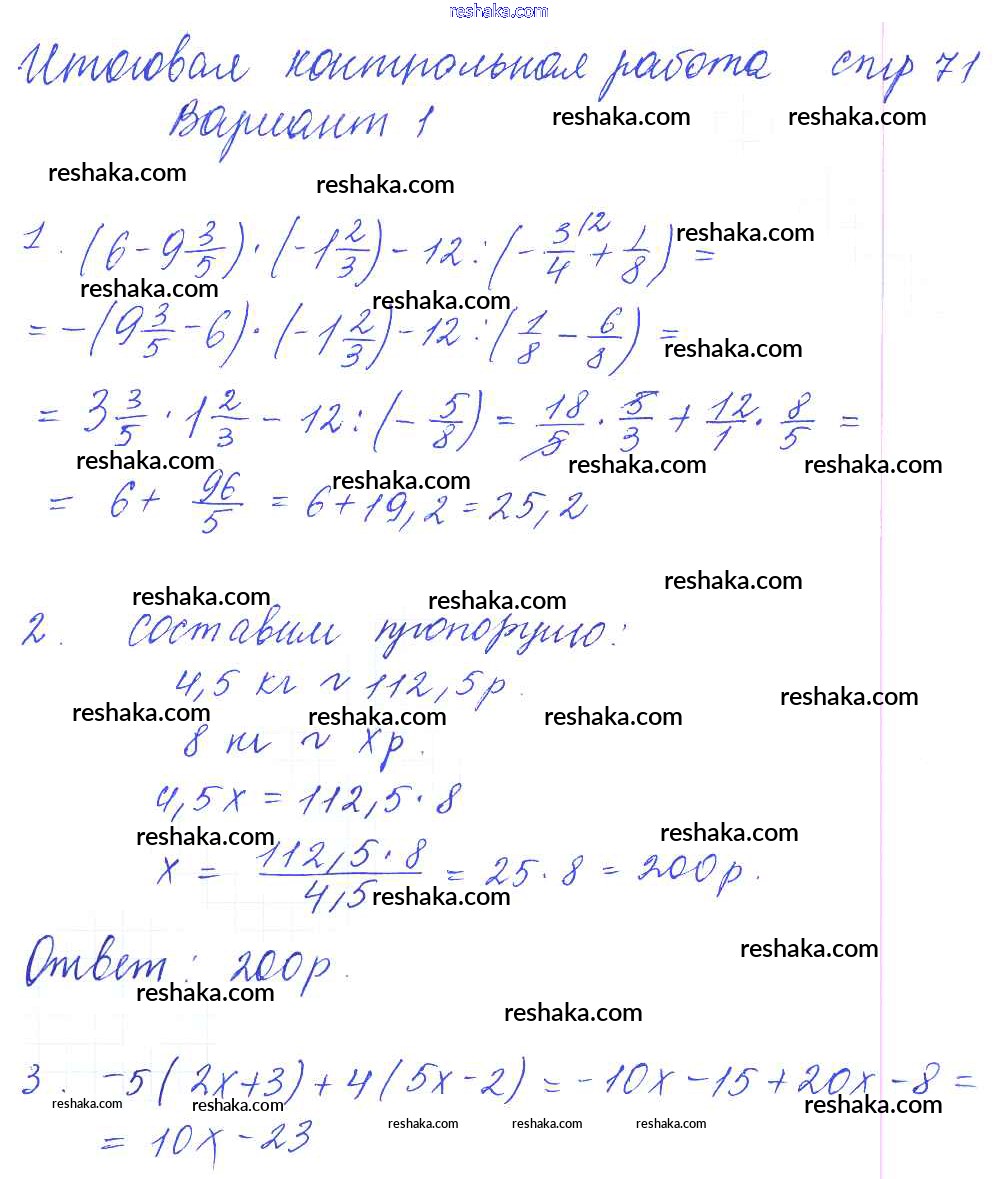 reshaka.com
Итоговая контрольная работа стр 71
Вариант 1
reshaka.com reshaka.com
reshaka.com reshaka.com
1. (6 - 9 3/5) · (-1 2/3) - 12 : (-3/4 \2 + 1/8) =
reshaka.com
reshaka.com reshaka.com
= -(9 3/5 - 6) · (-1 2/3) - 12 : (1/8 - 6/8) =
reshaka.com
= 3 3/5 · 1 2/3 - 12 : (-5/8) = 18/5 · 5/3 + 12/1 · 8/5 =
reshaka.com reshaka.com reshaka.com reshaka.com
= 6 + 96/5 = 6 + 19,2 = 25,2
reshaka.com reshaka.com reshaka.com
2. Составим пропорцию:
4,5 кг ~ 112,5 р.
reshaka.com reshaka.com reshaka.com reshaka.com
8 кг ~ х р.
4,5х = 112,5 · 8
reshaka.com reshaka.com
х = 112,5 · 8 / 4,5 = 25 · 8 = 200 р.
reshaka.com
Ответ: 200 р.
reshaka.com
reshaka.com reshaka.com
3. -5(2х+3) + 4(5х-2) = -10х - 15 + 20х - 8 =
reshaka.com reshaka.com reshaka.com
= 10х - 23
reshaka.com reshaka.com reshaka.com